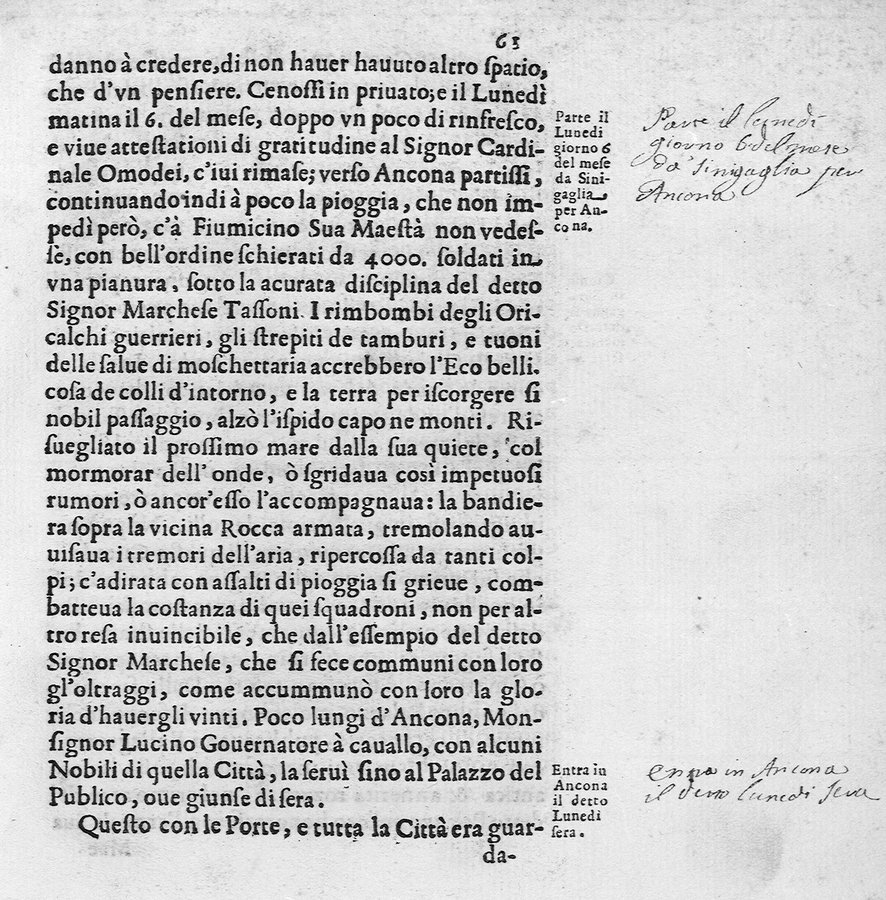 63
danno à credere, di non hauer hauuto altro ſpatio,
che d'vn penſiere. Cenoſſi in priuato; e il Lunedì
matina il 6. del meſe, doppo vn poco di rinfreſco,
e viue atteſtationi di gratitudine al Signor Cardi-
nale Omodei, c'iui rimaſe; verſo Ancona partiſſi,
continuando indi à poco la pioggia, che non im-
pedì però, c'à Fiumicino Sua Maeſtà non vedeſ-
ſe, con bell'ordine ſchierati da 4000. ſoldati in
vna pianura, ſotto la acurata diſciplina del detto
Signor Marcheſe Taſſoni. I rimbombi degli Ori-
calchi guerrieri, gli ſtrepiti de tamburi, e tuoni
delle ſalue di moſchettaria accrebbero l'Eco belli.
coſa de colli d'intorno, e la terra per iſcorgere ſi
nobil paſſaggio, alzò l'iſpido capo ne monti. Ri-
ſuegliato il proſſimo mare dalla ſua quiete, col
mormorar dell'onde, ò ſgridaua così impetuoſi
rumori, ò ancor'eſſo l'accompagnaua: la bandie-
ra ſopra la vicina Rocca armata, tremolando au-
uiſaua i tremori dell'aria, ripercoſſa da tanti col-
pi; c'adirata con aſſalti di pioggia ſi grieue, com-
batteua la coſtanza di quei ſquadroni, non per al-
tro reſa inuincibile, che dall'eſſempio del detto
Signor Marcheſe, che ſi fece communi con loro
gl'oltraggi, come accummunò con loro la glo-
ria d'hauergli vinti. Poco lungi d'Ancona, Mon-
ſignor Lucino Gouernatore à cauallo, con alcuni
Nobili di quella Città, la ſeruì ſino al Palazzo del
Publico, oue giunſe di ſera.
Queſto con le Porte, e tutta la Città era guar-
da-
Parte il
Lunedi
giorno 6
del meſe
da Sini-
gaglia
per An-
cona.
Parte il lunedi
giorno 6 del mese
da Sinigaglia per
Ancona
Entra in
Ancona
il detto
Lunedi
ſera.
in Ancona
il detto lunedi sera